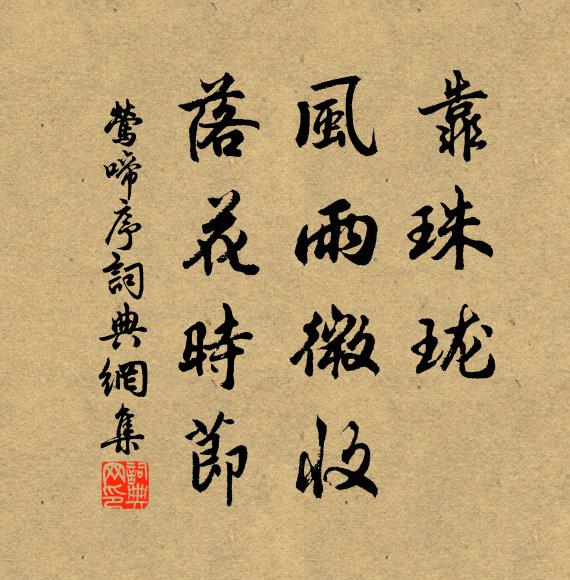 靠珠珑
風雨微收
落花時節
鶯啼序詞典網集
詞典网印